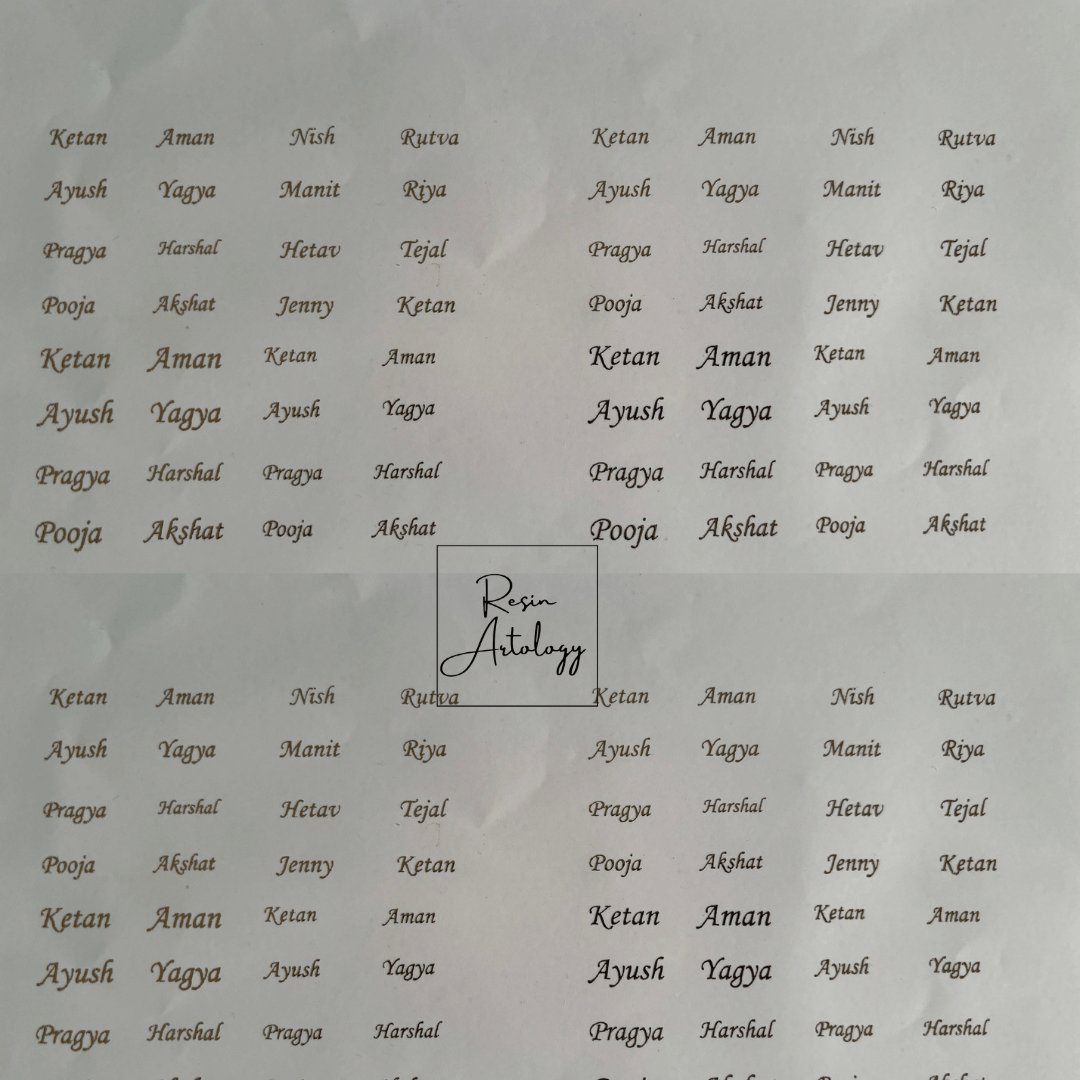 Ketan Aman Nish Rutva Ketan Aman Nish Rutva
Ayush Yagya Manit Riya Ayush Yagya Manit Riya
Pragya Harshal Hetav Tejal Pragya Harshal Hetav Tejal
Pooja Akshat Jenny Ketan Pooja Akshat Jenny Ketan
Ketan Aman Ketan Aman Ketan Aman Ketan Aman
Ayush Yagya Ayush Yagya Ayush Yagya Ayush Yagya
Pragya Harshal Pragya Harshal Pragya Harshal Pragya Harshal
Pooja Akshat Pooja Akshat Pooja Akshat Pooja Akshat
Resin
Artology
Ketan Aman Nish Rutva Ketan Aman Nish Rutva
Ayush Yagya Manit Riya Ayush Yagya Manit Riya
Pragya Harshal Hetav Tejal Pragya Harshal Hetav Tejal
Pooja Akshat Jenny Ketan Pooja Akshat Jenny Ketan
Ketan Aman Ketan Aman Ketan Aman Ketan Aman
Ayush Yagya Ayush Yagya Ayush Yagya Ayush Yagya
Pragya Harshal Pragya Harshal Pragya Harshal Pragya Harshal